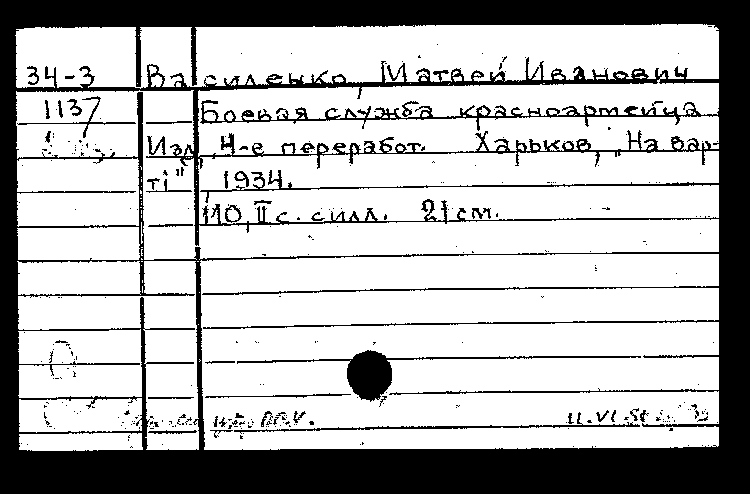 34-3 Василенко, Матвей Иванович
1137 Боевая служба красноармейца
Изд. 4-е переработ. Харьков, „На вар-
тi", 1934.
110, II с. с илл. 21 см.
11.VI.51